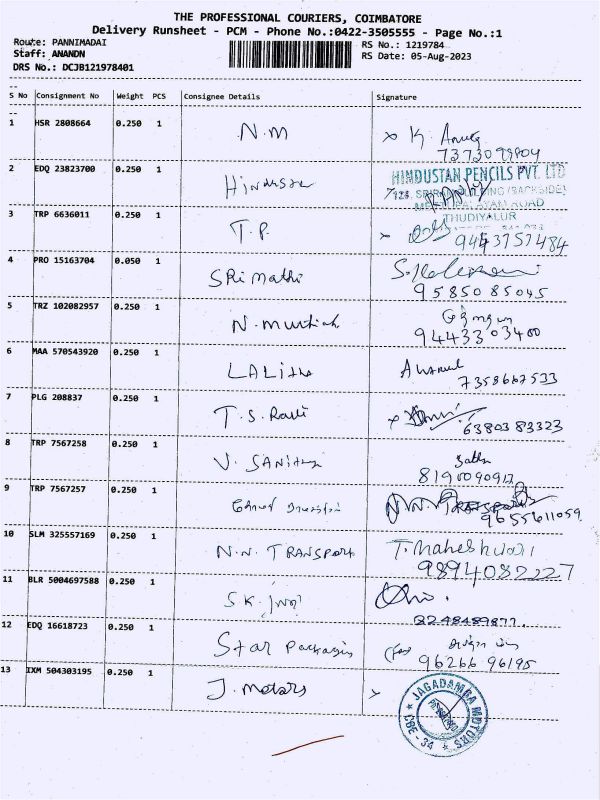 THE PROFESSIONAL COURIERS, COIMBATORE
Delivery Runsheet - PCM - Phone No.:0422-3505555 - Page No.:1
Route: PANNIMADAI
RS No.: 1219784
Staff: ANANDN
RS Date: 05-Aug-2023
DRS No.: DCJB121978401
S No Consignment No Weight PCS Consignee Details Signature
1 HSR 2808664 0.250 1 N.M K.
2 EDQ 23823700 0.250 1
HINDUSTAN PENCILS PVT. LTD
3 TRP 6636011 0.250 1 T.P.
THUDIYALUR
9443757484
4 PRO 15163704 0.050 1 SRi Mathi
95850 85045
5 TRZ 102082957 0.250 1 N.
94433 03400
6 MAA 570543920 0.250 1 LALitha
7358667533
7 PLG 208837 0.250 1 T.S. Ravi
6380383323
8 TRP 7567258 0.250 1 V.
8190090912
9 TRP 7567257 0.250 1
9655611059
10 SLM 325557169 0.250 1 N.N. TRANSPORT T. Maheshwari
9894082227
11 BLR 5004697588 0.250 1 S.K.
12 EDQ 16618723 0.250 1 Star Packaging
96266 96195
13 IXM 504303195 0.250 1 J. Motors
JAGADAMBA MOTORS
CBE - 34